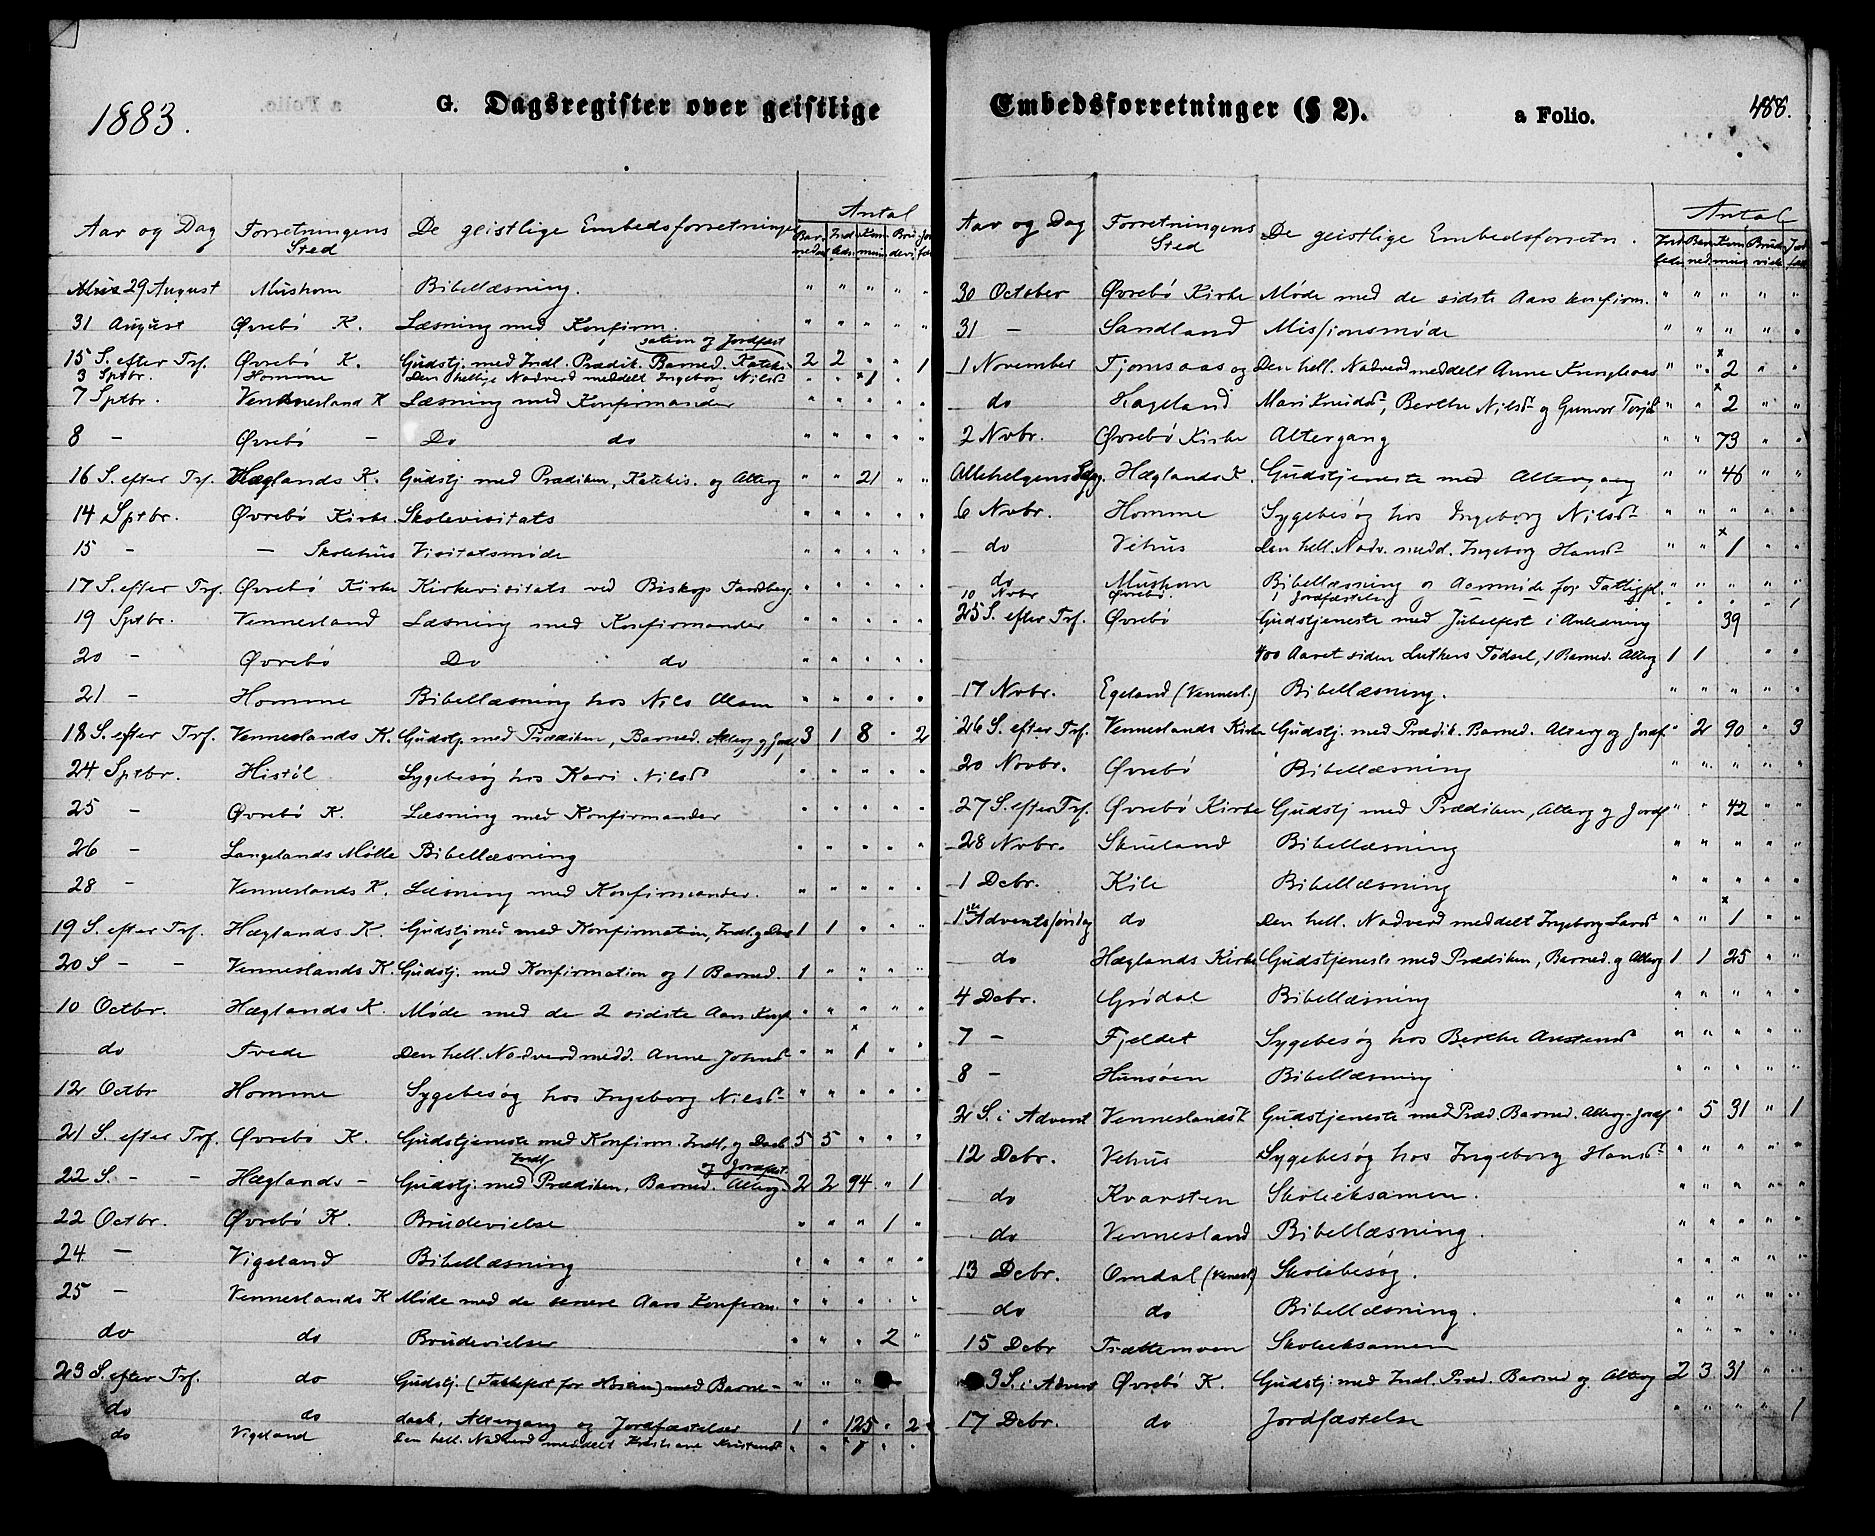 1883.
G. Dagsregister over geistlige
Aar og Dag Forretningens Sted De geistlige Embedsforretninger Antal
29 August Mushom Bibellæsning. " " " " "
31 August Øvrebö K. Læsning med Konfirm. " " " " "
sation og Jordfæst
15 S. efter Trf. Øvrebö K. Gudstj. med Indl. Prædik. Barned. Kateki- 2 2 " " 1
3 Sptbr. Homme Den hellige Nadverd meddelt Ingeborg Nilsd " " x1 " "
7 Sptbr. Vennesland K Læsning med Konfirmander " " " " "
8 - Øvrebö - Do do " " " " "
16 S. efter Trf. Hæglands K. Gudstj med Prædiken, Katekis. og Alterg " " 21 " "
14 Sptbr. Øvrebö Kirke Skolevisitats " " " " "
15 - - Skolehus Visitatsmöde " " " " "
17 S. efter Trf. Øvrebö Kirke Kirkevisitats ved Biskop Tandberg " " " " "
19 Sptbr. Vennesland Læsning med Konfirmander " " " " "
20 - Øvrebö Do do " " " " "
21 - Homme Bibellæsning hos Nils Olsen " " " " "
18 S. efter Trf. Venneslands K. Gudstj. med Prædiken, Barned. Alterg og Jordf. 3 1 8 " 2
24 Sptbr. Histöl Sygebesög hos Kari Nilsd " " " " "
25 - Øvrebö K. Læsning med Konfirmander " " " " "
26 - Langelands Mölle Bibellæsning " " " " "
28 - Venneslands K. Læsning med Konfirmander. " " " " "
19 S. efter Trf. Hæglands K. Gudstj med Konfirmation, Indl. og Daab 1 1 " " "
20 S - - Venneslands K. Gudstj. med Konfirmation og 1 Barned. 1 " " " "
10 Octbr. Hæglands K. Möde med de 2 sidste Aars Konf. " " " " "
do Tvede Den hell. Nadverd medd. Anne Johnsd " " x1 " "
12 Octbr Homme Sygebesög hos Ingeborg Nilsd " " " " "
21 S. efter Trf. Øvrebö K. Gudstjeneste med Konfirm. Indl. og Daab 5 5 " " "
Indl. og Jordfæst.
22 S. - - Hæglands - Gudstj. med Prædiken, Barned. Alterg 2 2 94 " 1
22 Octbr. Øvrebö K. Brudevielse " " " 1 "
24 - Vigeland Bibellæsning " " " " "
25 - Venneslands K Möde med de senere Aars Konfirm. " " " " "
do do Brudevielser " " " 2 "
23 S. efter Trf. do Gudstj. (Takkefest for Hösten) med Barne- " " "
do do daab, Altergang og Jordfæstelser 1 " 125 " 2
do Vigeland Den hell. Nadverd meddelt Kristiane Kristensd " " 1 " "
Embedsforretninger (§ 2). a Folio. 488.
Aar og Dag Forretningens Sted De geistlige Embedsforretn. Antal
30 October Øvrebö Kirke Möde med de sidste Aars konfirm. " " " " "
31 - Sandland Missionsmöde " " " " "
1 November Fjomsaas og Den hell. Nadverd meddelt Anne " " x2 " "
do Kageland Mari Knudsd, Berthe Nilsd og Gunvor Torjsd " " x2 " "
2 Nvbr. Øvrebö Kirke Altergang " " 73 " "
Allehelgens Sdg. Hæglands K. Gudstjeneste med Altergang " " 46 " "
6 Nvbr. Homme Sygebesög hos Ingeborg Nilsd " " " " "
do Vehus Den hell. Nadv. medd. Ingeborg Hansd " " x1 " "
do Mushom Bibellæsning og Aarmöde for Fattigpl. " " " " "
10 Nvbr Øvrebö. Jordfæstelse " " " " 1
25 S. efter Trf. Øvrebö Gudstjeneste med Jubelfest i Anledning 39
400 Aaret siden Luthers Födsel, 1 Barned. Alterg 1 1 " "
17 Nvbr. Egeland (Vennesl.) Bibellæsning. " " " " "
26 S. efter Trf. Venneslands Kirke Gudstj. med Prædik. Barned. Alterg og Jordf " 2 90 " 3
20 Novbr. Øvrebö Bibellæsning " " " " "
27 S. efter Trf. Øvrebö Kirke Gudstj med Prædiken, Alterg og Jordf " " 42 " "
28 Nvbr. Skuland Bibellæsning " " " " "
1 Dcbr. Kile Bibellæsning " " " " "
1ste Adventssöndag do Den hell. Nadverd meddelt Ingeborg Larsd " " x1 " "
do Hæglands Kirke Gudstjeneste med Prædiken, Barned. og Alterg 1 1 25 " "
4 Dcbr. Grödal Bibellæsning " " " " "
7 - Fjeldet Sygebesög hos Berthe Austensd " " " " "
8 - Hunsöen Bibellæsning " " " " "
2 S. i Advent Venneslands K Gudstjeneste med Præd. Barned. Alterg. Jordf " 5 31 " 1
12 Dcbr. Vehus Sygebesög hos Ingeborg Hansd " " " " "
do Kvarsten Skoleeksamen. " " " " "
do Vennesland Bibellæsning. " " " " "
13 Dcbr. Omdal (Vennesl) Skolebesög. " " " " "
do do Bibellæsning. " " " " "
15 Dcbr Trættemoen Skoleeksamen " " " " "
3 S. i Advent Øvrebö K. Gudstj. med Indl. Præd. Barned og Alterg 2 3 31 " "
17 Dcbr. do Jordfæstelse " " " " 1